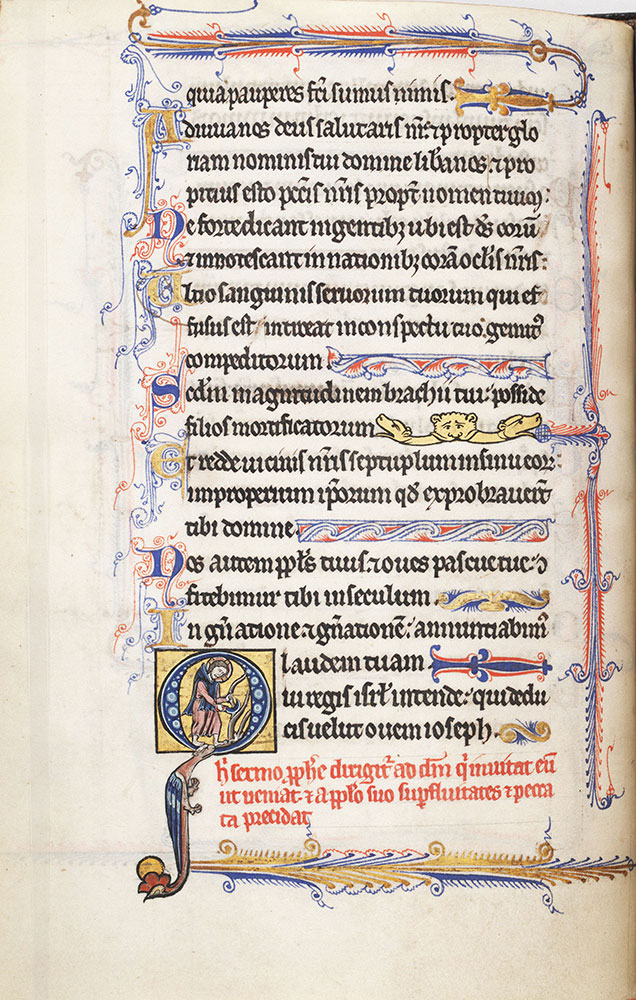 quia pauperes fc̄i sumus nimis.
Adiuua nos deus salutaris nr̄: ⁊ propter glo
riam nominis tui domine libera nos: ⁊ pro
pitius esto pecc̄is nr̄is propt̄ nomen tuum:
Ne forte dicant in gentibȝ ubi est ds̄ eorū:
⁊ innotescant in nationibȝ corā oclis nr̄is:
Ultio sanguinis seruorum tuorum qui ef
fusus est: intreat in conspectu tuo gemitꝰ
compeditorum
Scd̄m magnitudinem brachii tui: posside
filios mortificatorum
Et redde uicinis nr̄is septuplum in sinu eor:
improperium ip̄orum qd̄ exprobrauerūt
tibi domine.
Nos autem pp̄ls tuus: ⁊ oues pascue tue: ɔ
fitebimur tibi in seculum.
In gn̄atione ⁊ gn̄ationē: annuntiabimꝰ
laudem tuam
Qui regis isr̄l intende: qui dedu
cis uelut ouem ioseph.
h̄ sermo pp̄he dirigit᷑ ad dm̄ q̄ inuitat eū
ut ueniat ⁊ a pp̄lo suo sup̄fluitates ⁊ pecca
ta precidat